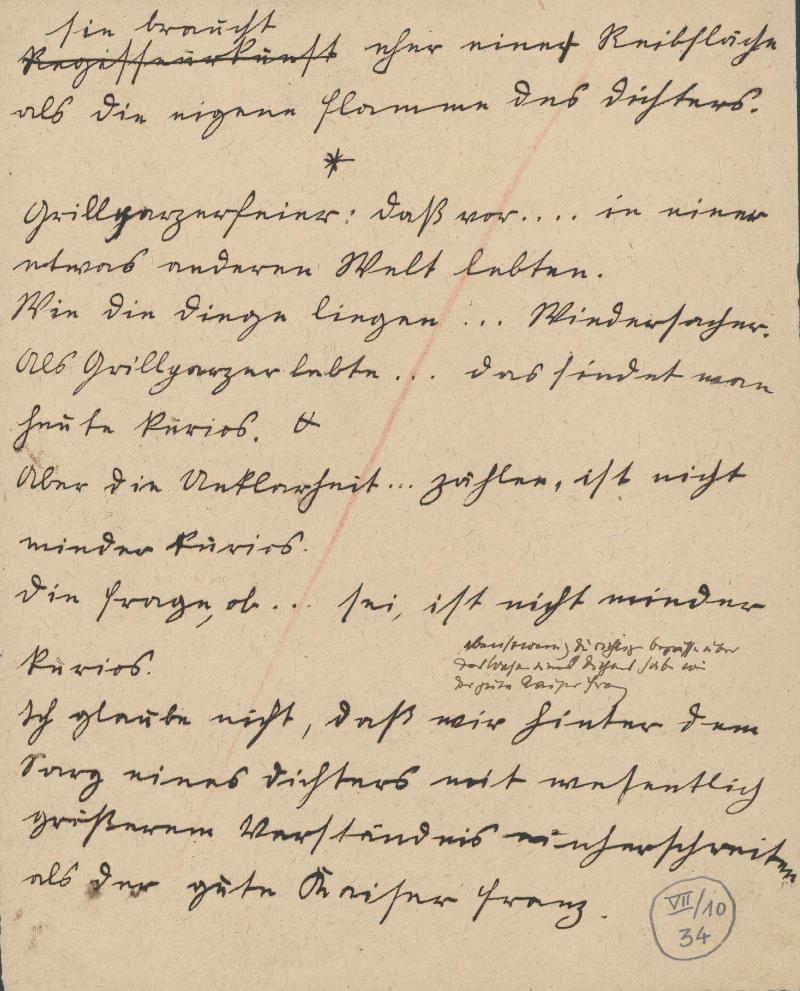 sie braucht
Regisseurkunst eher einer Reibfläche
als die eigene Flamme des Dichters.
*
Grillparzerfeier: daß vor.... in einer
etwas anderen Welt lebten.
Wie die Dinge liegen ... Wiedersacher.
Als Grillparzer lebte ... das findet man
heute kurios.
Aber die Unklarheit... zählen, ist nicht
minder kurios.
Die Frage, ob ... sei, ist nicht minder
kurios.
ebensowenig die richtige Begriffe über
das Wesen eines Dichters habe wie
der gute Kaiser Franz
Ich glaube nicht, daß wir hinter dem
Sarg eines Dichters mit wesentlich
größerem Verständnis einherschreiten
als der gute Kaiser Franz.
VII/10
34